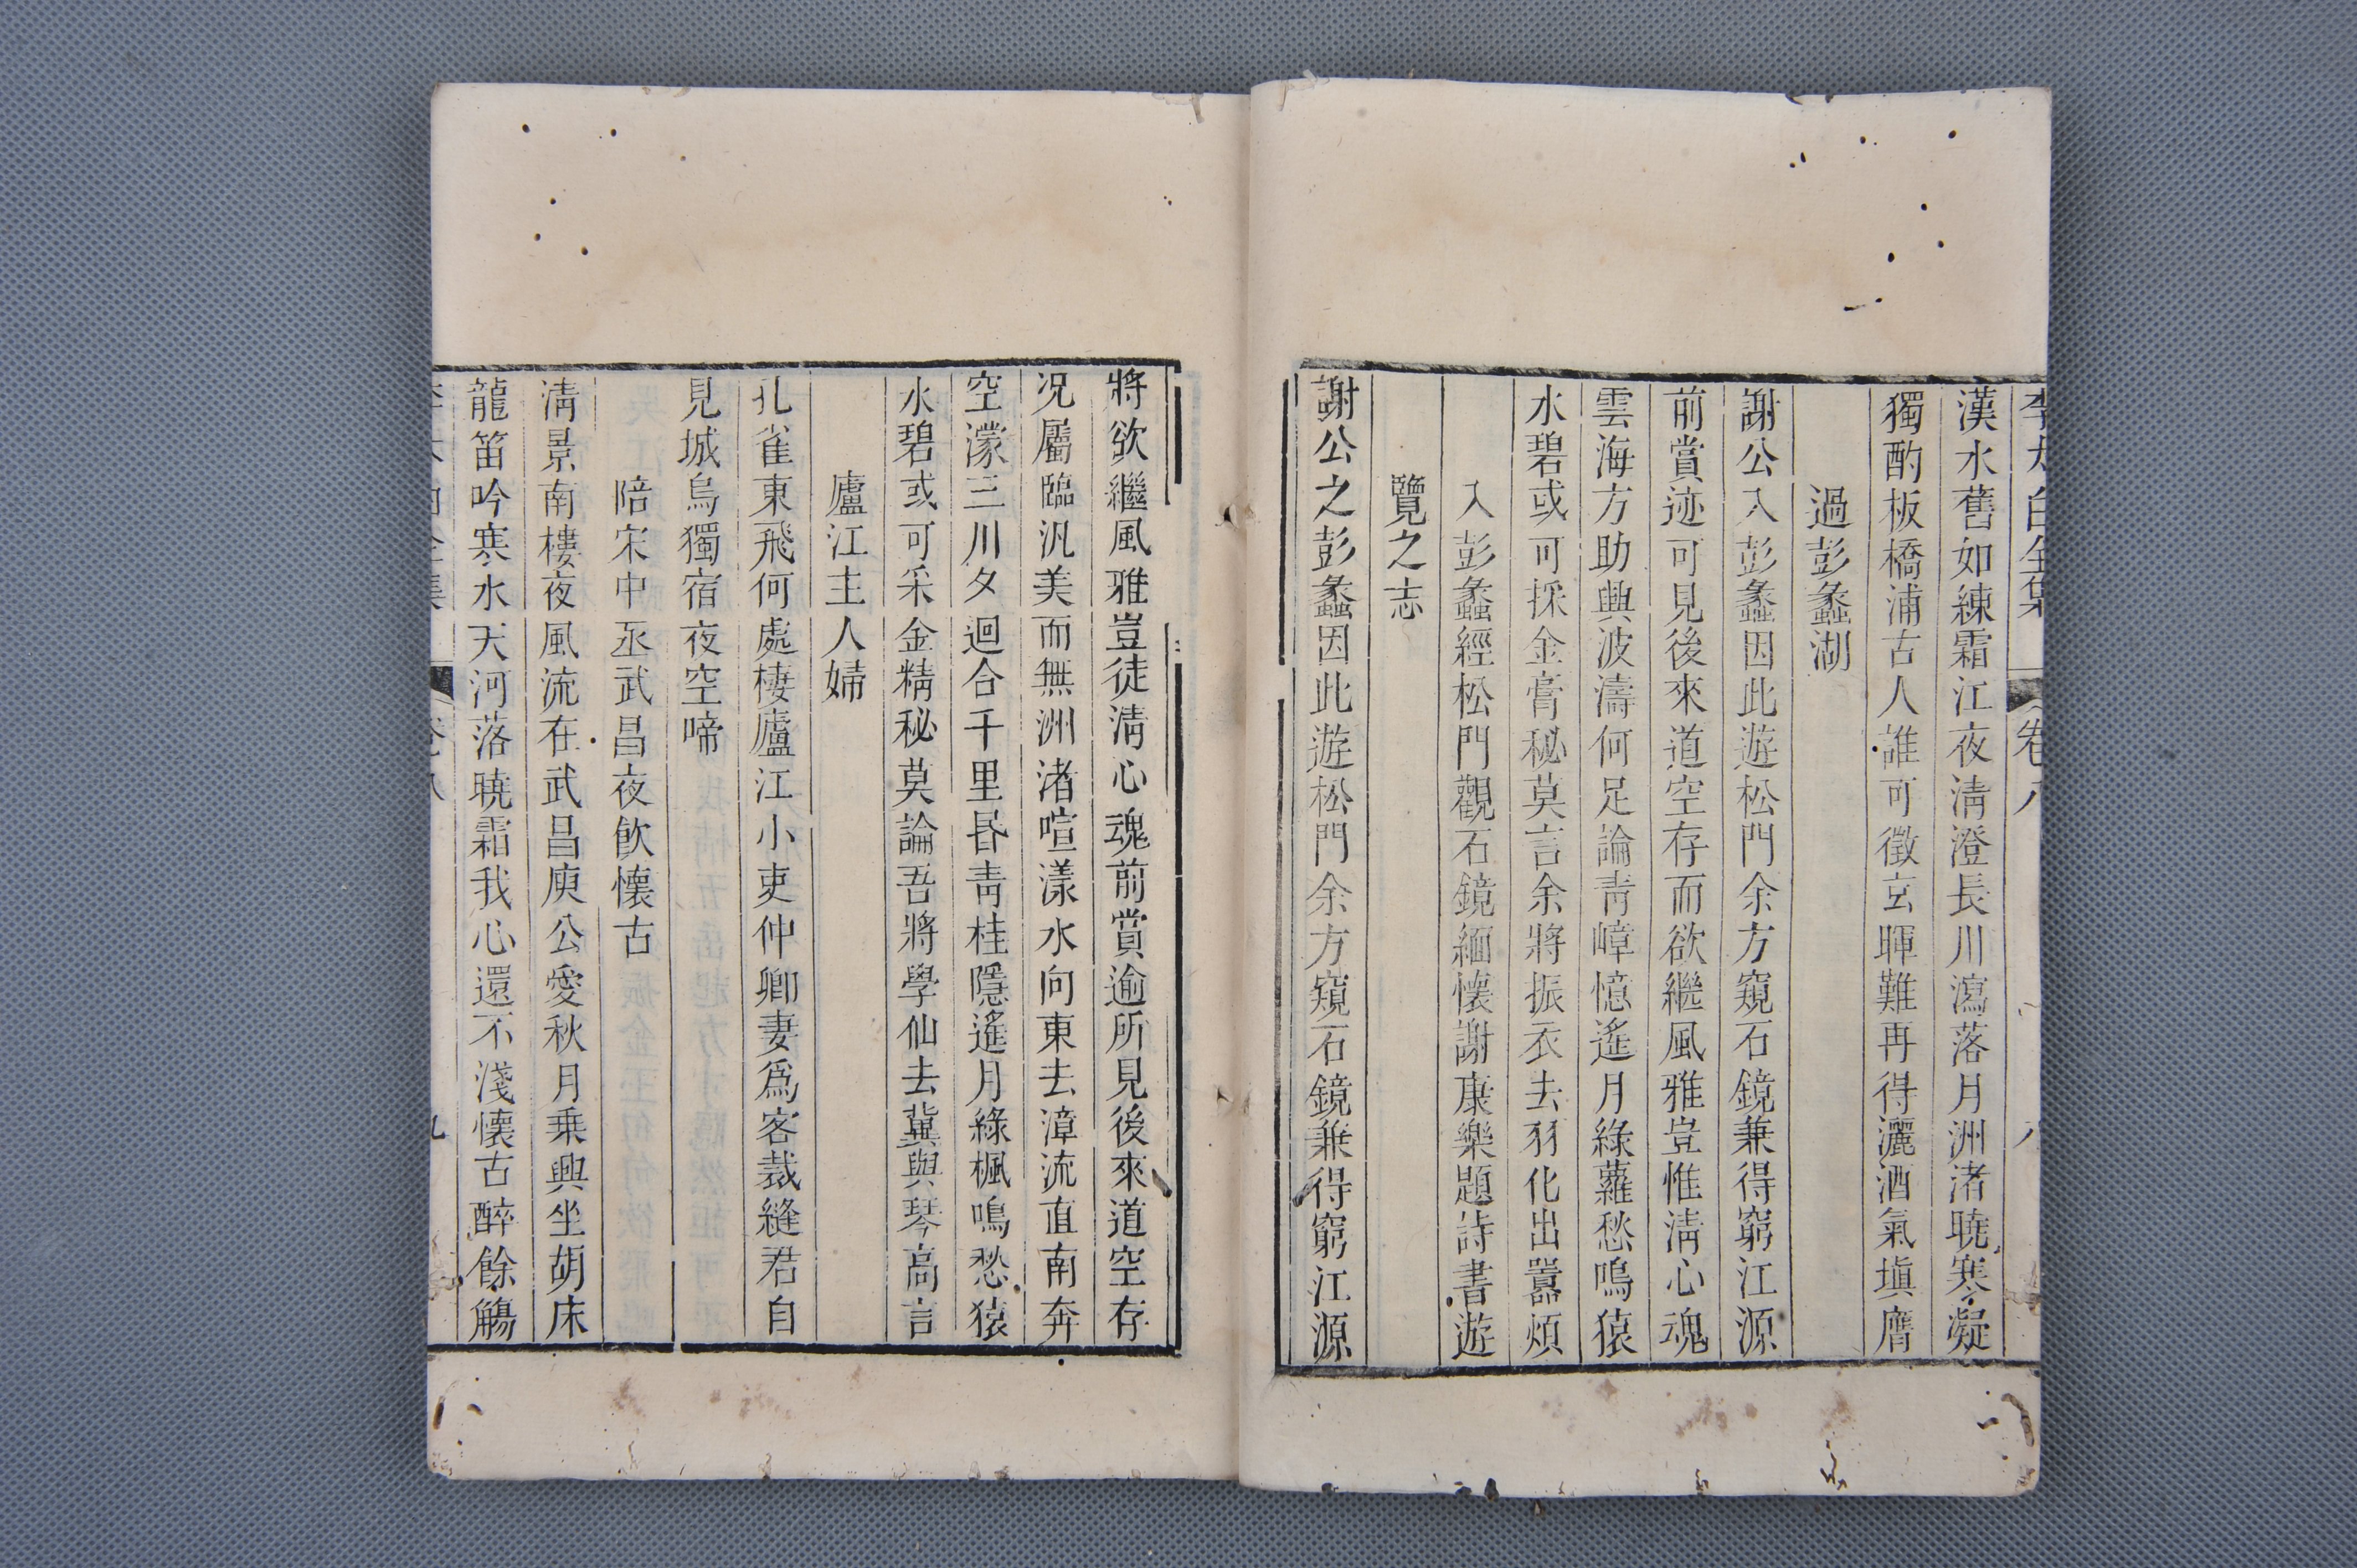 李太白全集 卷八 八
漢水舊如練霜江夜淸澄長川瀉落月洲渚曉寒凝
獨酌板橋浦古人誰可徵玄暉難再得灑酒氣塡膺
過彭蠡湖
謝公入彭蠡因此遊松門余方窺石鏡兼得窮江源
前賞迹可見後來道空存而欲繼風雅豈惟淸心魂
雲海方助興波濤何足論靑嶂憶遙月綠蘿愁鳴猿
水碧或可採金膏秘莫言余將振衣去羽化出囂煩
入彭蠡經松門觀石鏡緬懷謝康樂題詩書遊
覽之志
謝公之彭蠡因此遊松門余方窺石鏡兼得窮江源
將欲繼風雅豈徒淸心魂前賞逾所見後來道空存
况屬臨汎美而無洲渚喧漾水向東去漳流直南奔
空濛三川夕迴合千里昏靑桂隱遙月綠楓鳴愁猿
水碧或可采金精秘莫論吾將學仙去冀與琴高言
廬江主人婦
孔雀東飛何處棲廬江小吏仲卿妻爲客裁縫君自
見城烏獨宿夜空啼
陪宋中丞武昌夜飮懷古
淸景南樓夜風流在武昌庾公愛秋月乘興坐胡床
龍笛吟寒水天河落曉霜我心還不淺懷古醉餘觴
李太白全集 卷八 九